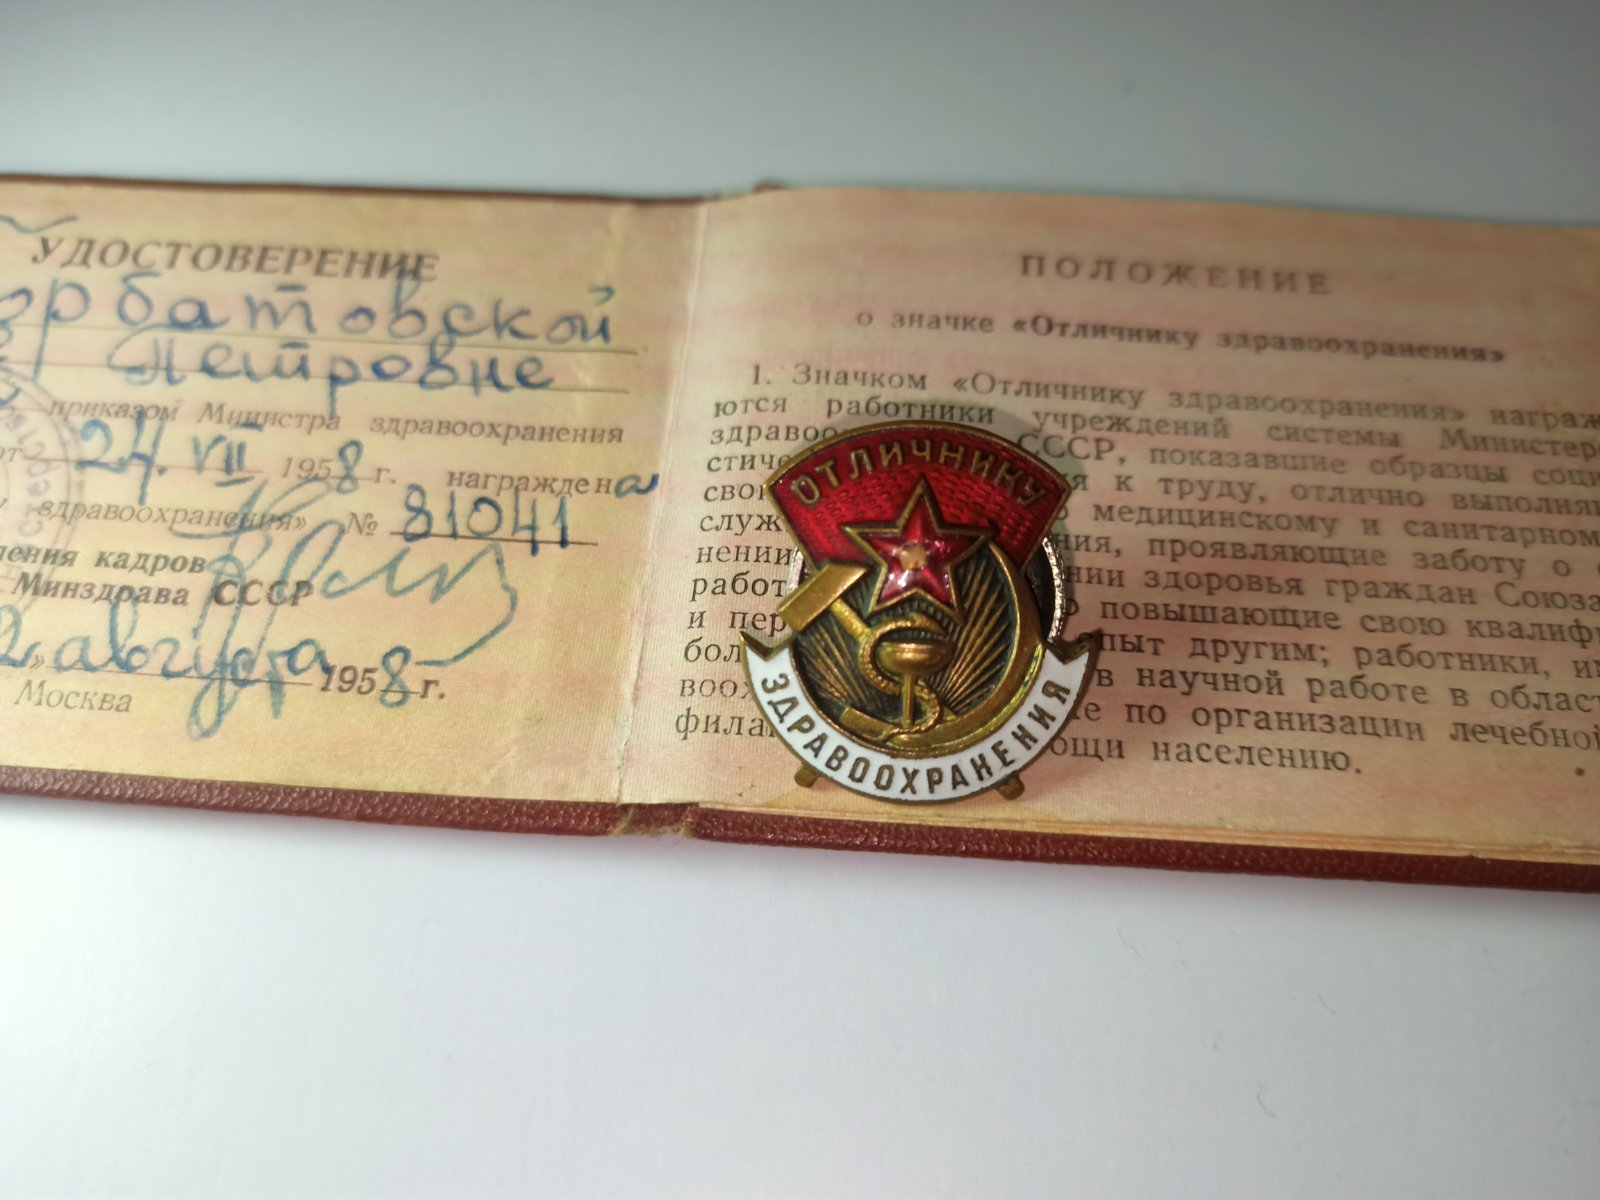 УДОСТОВЕРЕНИЕ
орбатовской
Петровне
приказом Министра здравоохранения
от 24. VII 1958 г. награждена
здравоохранения» № 81041
ления кадров
Минздрава СССР
2» августа 1958 г.
Москва
ПОЛОЖЕНИЕ
о значке «Отличнику здравоохранения»
1. Значком «Отличнику здравоохранения» награж
ются работники учреждений системы Министер
здравоо СССР, показавшие образцы соци
стиче я к труду, отлично выполня
свои медицинскому и санитарном
служ ния, проявляющие заботу о
нении нии здоровья граждан Союза
работ повышающие свою квалифи
и пер пыт другим; работники, и
бол в научной работе в облас
воох е по организации лечебной
фила ощи населению.
ОТЛИЧНИКУ
ЗДРАВООХРАНЕНИЯ